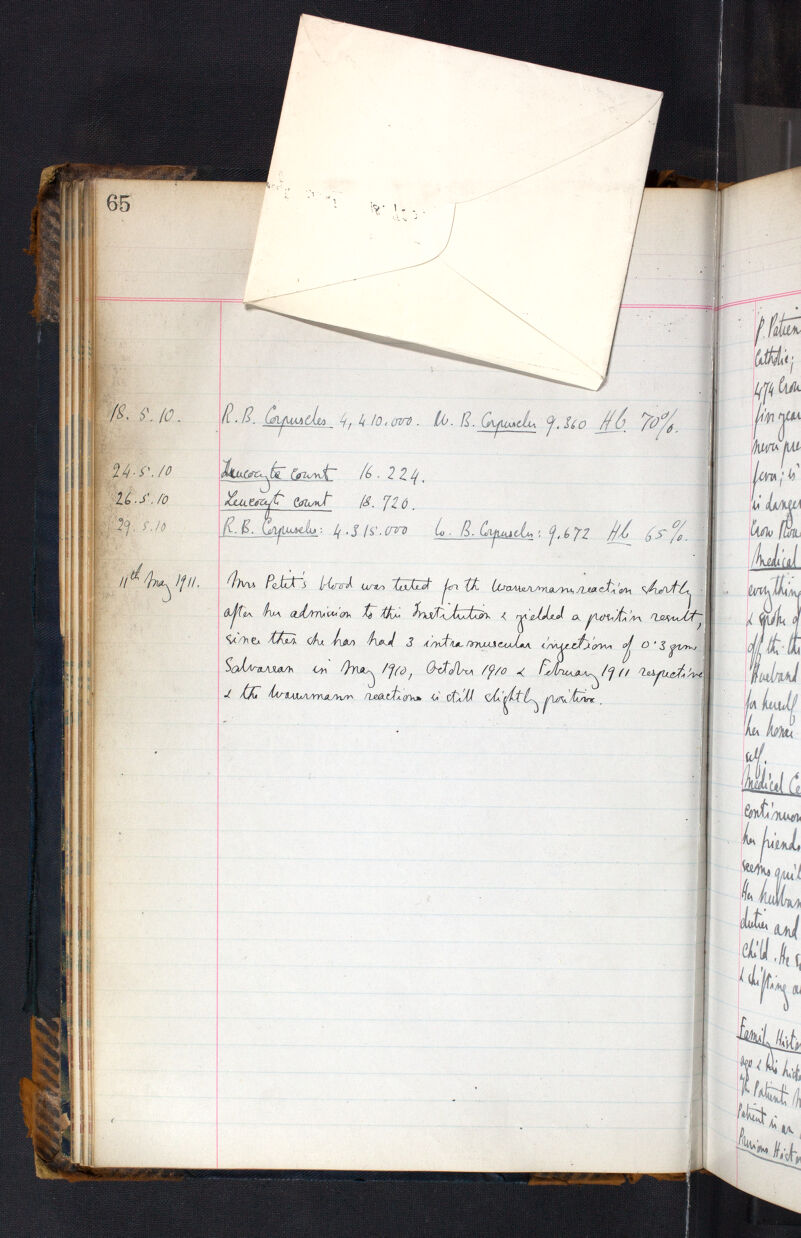 65
18. 5. 10. R. B. Corpuscles 4,410.000. W. B. Corpuscles 9.360 Hb. 70%.
24.5.10 Leucocyte count 16.224.
26.5.10 Leucocyte count 18.720.
29.5.10 R. B. Corpuscles: 4.315.000 W. B. Corpuscles: 9.672 Hb 65%.
11th May 1911. Mrs Petit's blood was tested for th Wassermann reaction shortly
after her admission to this Institution & yielded a positive result,
since then she has had 3 intramuscular injections of 0.3 grm
Salvarsan in May 1910, October 1910 & February 1911 respective
& the Wassermann reaction is still slightly positive.
P. Patien
Catholic;
474 Crow
five year
never pre
fever; is
is danger
Crow Roa
Medical
everything
& spoke of
off the
Husband
for herself
her home
self.
Medical Ce
continuou
her friends
seems quit
Her husban
duties and
child. He
& shifting a
Family Histo
ago & his
Patient's
Patient is an
Previous Histo